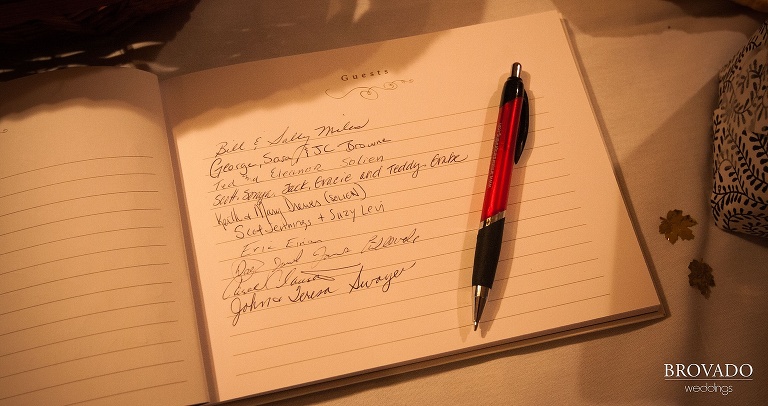 Guests
Bill & Sally Miles
George, Sasa, JC Browne
Ted and Eleanor Solien
Scott, Sonya, Jack, Gracie and Teddy Grabe
Keith & Mary Drewes (Solien)
Scot Jennings + Suzy Levi
Eric
John & Teresa Swager
BROVADO
weddings